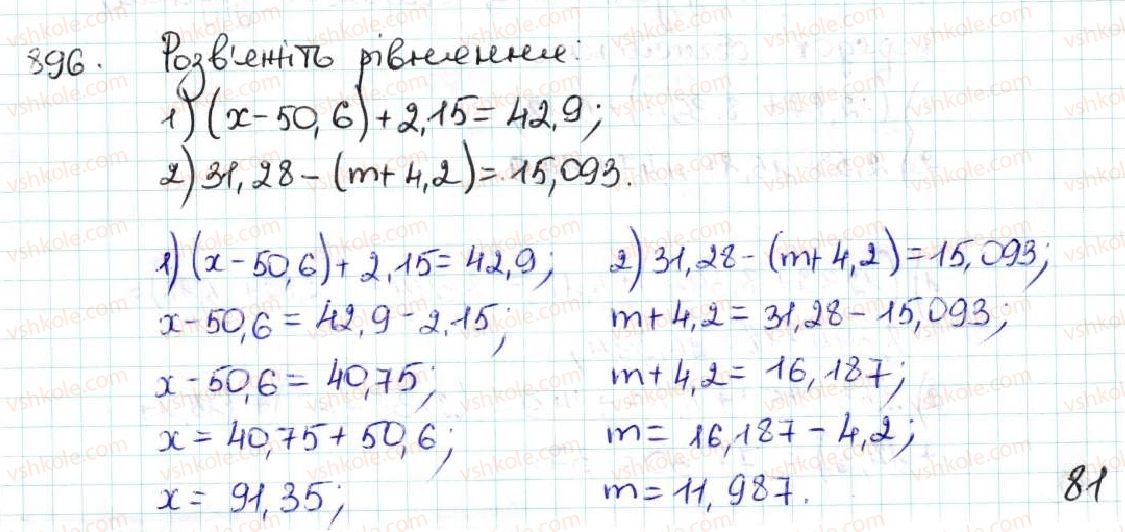 896. Розв'яжіть рівняння:
1) (x-50,6)+2,15=42,9;
2) 31,28-(m+4,2)=15,093.
1) (x-50,6)+2,15=42,9;
x-50,6=42,9-2,15;
x-50,6=40,75;
x=40,75+50,6;
x=91,35;
2) 31,28-(m+4,2)=15,093;
m+4,2=31,28-15,093;
m+4,2=16,187;
m=16,187-4,2;
m=11,987.
81
vshkole.com